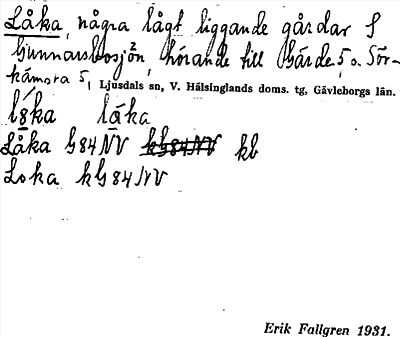 Låka, några lågt liggande gårdar S
Gunnarsbosjön, hörande till Gärde 5 o. Sör-
kämsta 5, Ljusdals sn, V. Hälsinglands doms. tg, Gävleborgs län.
låka
Låka G84NV kG84NV kb
Loka kG84NV
Erik Fallgren 1931.